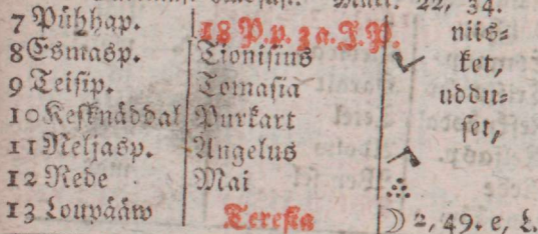 Matt. 22, 34.
7 Pühhap. 18 P. p. 3 a. J. P. niis⸗
8 Esmasp. Tionisius ket,
9 Teisip. Tomasia uddu⸗
10 Kesknäddal Purkart set,
11 Neljasp. Angelus
12 Rede Mai
13 Loupääw Teresia ☽ 2, 49. e, L.